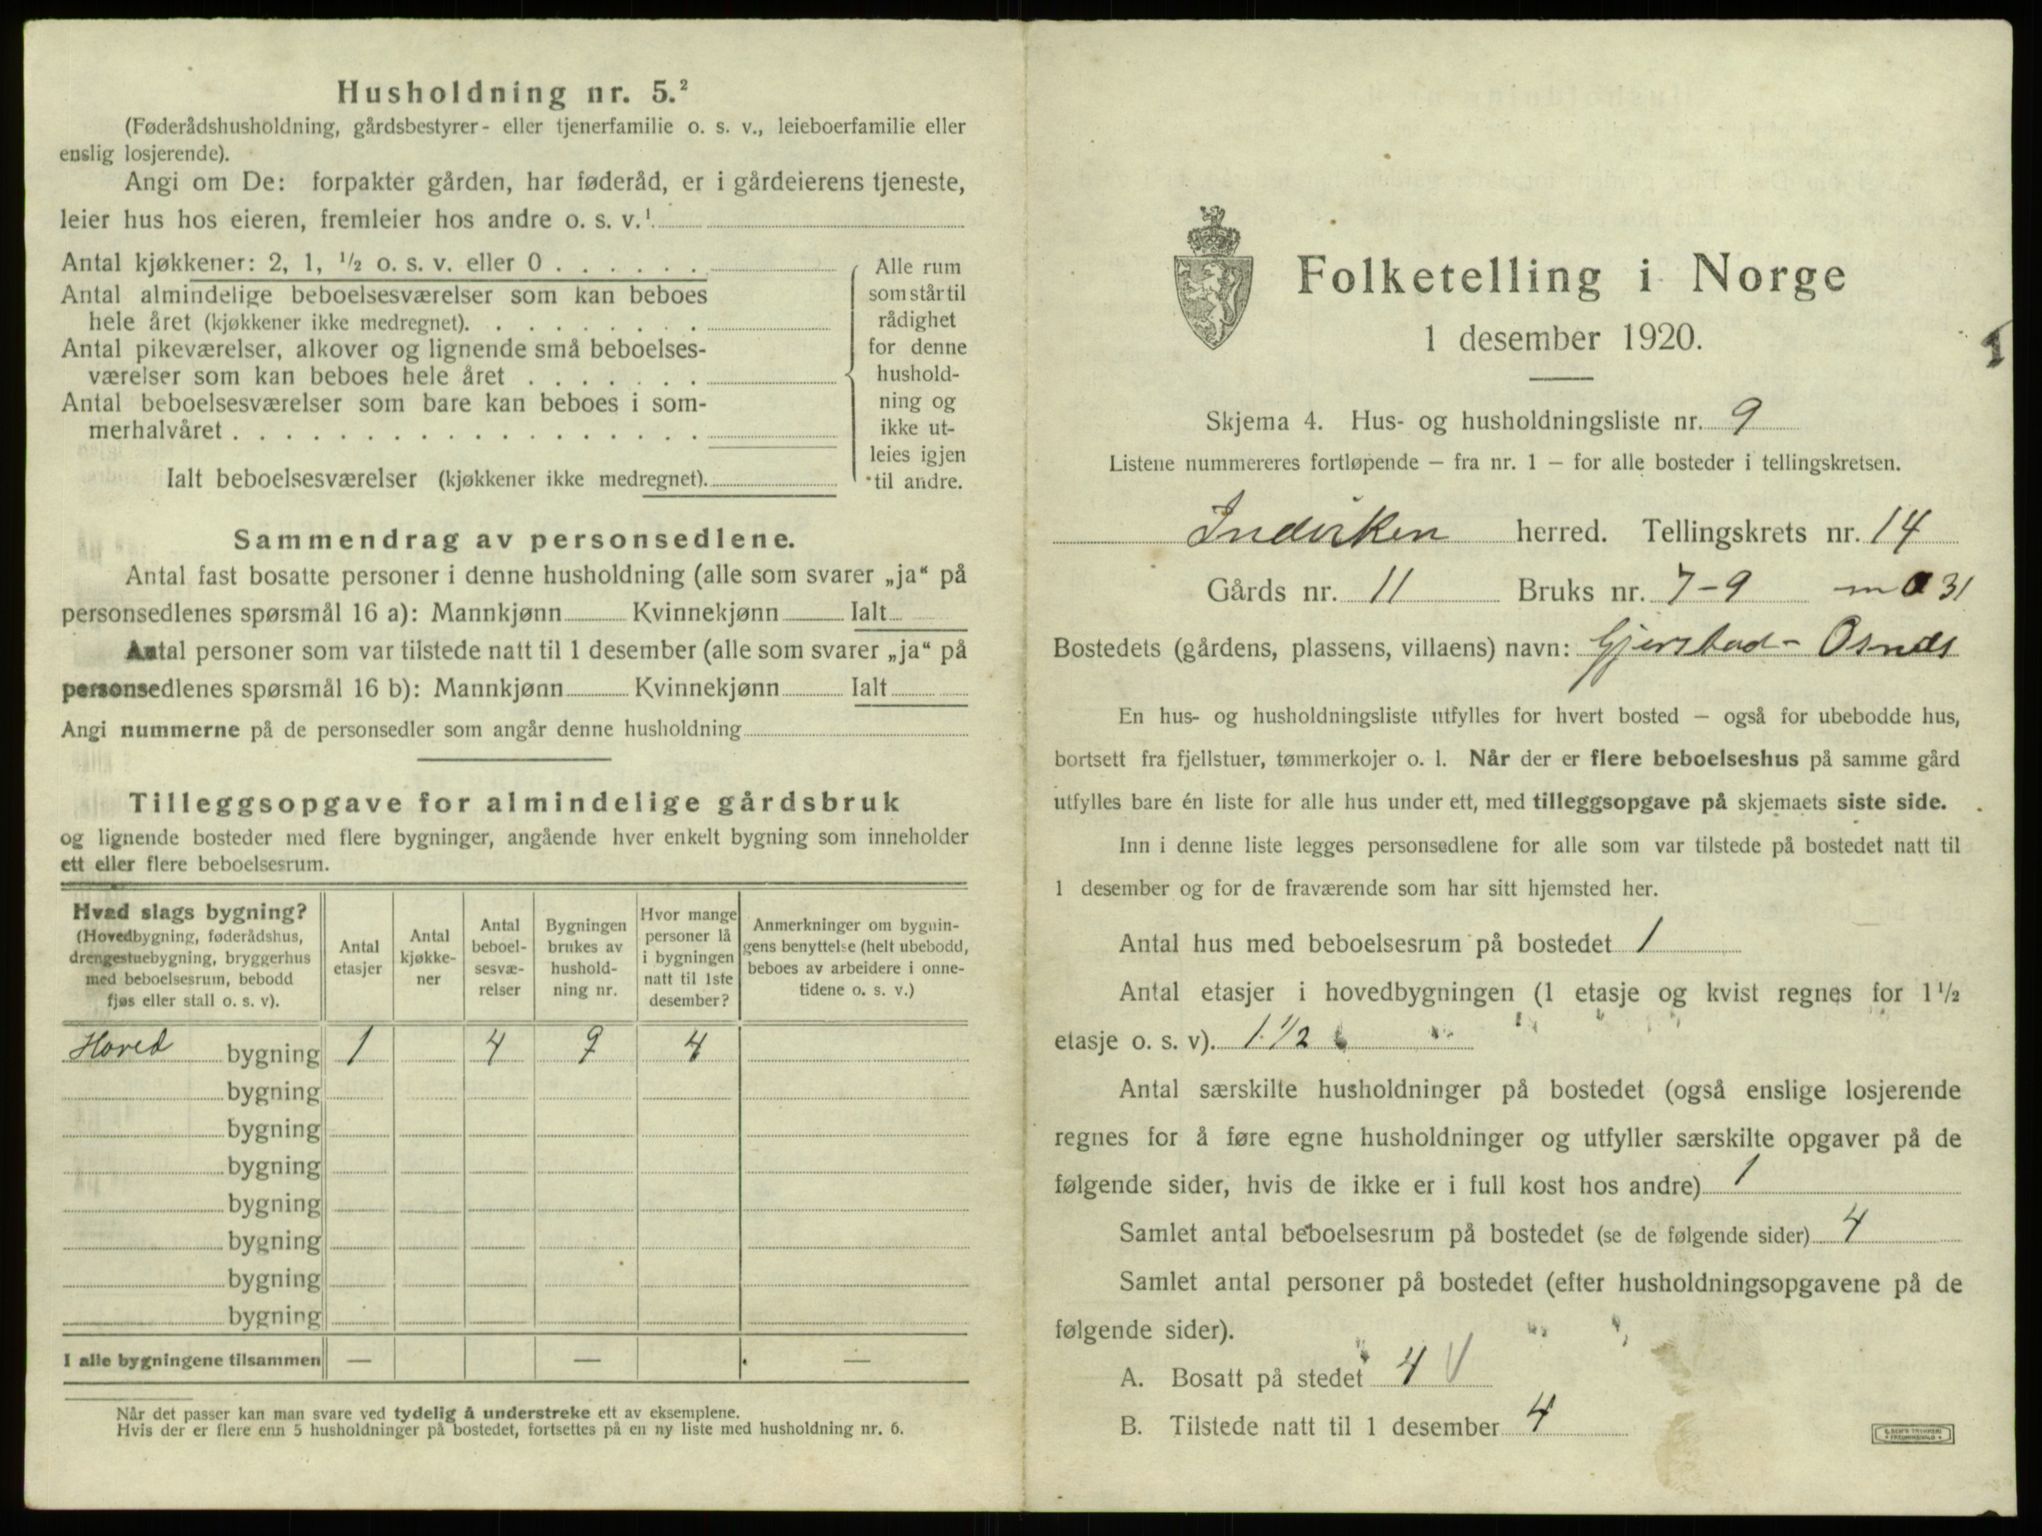 Husholdning nr. 5.²
(Føderådshusholdning, gårdsbestyrer- eller tjenerfamilie o. s. v., leieboerfamilie eller
enslig losjerende).
Angi om De: forpakter gården, har føderåd, er i gårdeierens tjeneste,
leier hus hos eieren, fremleier hos andre o. s. v.¹
Antal kjøkkener: 2, 1, ½ o. s. v. eller 0
Antal almindelige beboelsesværelser som kan beboes
hele året (kjøkkener ikke medregnet).
Antal pikeværelser, alkover og lignende små beboelses-
værelser som kan beboes hele året
Antal beboelsesværelser som bare kan beboes i som-
merhalvåret
Ialt beboelsesværelser (kjøkkener ikke medregnet).
Alle rum
som står til
rådighet
for denne
hushold-
ning og
ikke ut-
leies igjen
til andre.
Sammendrag av personsedlene.
Antal fast bosatte personer i denne husholdning (alle som svarer „ja“ på
personsedlenes spørsmål 16 a): Mannkjønn Kvinnekjønn Ialt
Antal personer som var tilstede natt til 1 desember (alle som svarer „ja“ på
personsedlenes spørsmål 16 b): Mannkjønn Kvinnekjønn Ialt
Angi nummerne på de personsedler som angår denne husholdning
Tilleggsopgave for almindelige gårdsbruk
og lignende bosteder med flere bygninger, angående hver enkelt bygning som inneholder
ett eller flere beboelsesrum.
Hvad slags bygning?
(Hovedbygning, føderådshus,
drengestuebygning, bryggerhus
med beboelsesrum, bebodd
fjøs eller stall o. s. v).
Antal
etasjer
Antal
kjøkke-
ner
Antal
beboel-
sesvæ-
relser
Bygningen
brukes av
hushold-
ning nr.
Hvor mange
personer lå
i bygningen
natt til 1ste
desember?
Anmerkninger om bygnin-
gens benyttelse (helt ubebodd,
beboes av arbeidere i onne-
tidene o. s. v.)
Hoved bygning 1 4 9 4
bygning
bygning
bygning
bygning
bygning
bygning
bygning
I alle bygningene tilsammen — — —
Når det passer kan man svare ved tydelig å understreke ett av eksemplene.
Hvis der er flere enn 5 husholdninger på bostedet, fortsettes på en ny liste med husholdning nr. 6.
Folketelling i Norge
1 desember 1920.
Skjema 4. Hus- og husholdningsliste nr. 9
Listene nummereres fortløpende – fra nr. 1 – for alle bosteder i tellingskretsen.
Indviken herred. Tellingskrets nr. 14
Gårds nr. 11 Bruks nr. 7-9 31
Bostedets (gårdens, plassens, villaens) navn: Gjerstad - Osnes
En hus- og husholdningsliste utfylles for hvert bosted – også for ubebodde hus,
bortsett fra fjellstuer, tømmerkojer o. l. Når der er flere beboelseshus på samme gård
utfylles bare én liste for alle hus under ett, med tilleggsopgave på skjemaets siste side.
Inn i denne liste legges personsedlene for alle som var tilstede på bostedet natt til
1 desember og for de fraværende som har sitt hjemsted her.
Antal hus med beboelsesrum på bostedet 1
Antal etasjer i hovedbygningen (1 etasje og kvist regnes for 1½
etasje o. s. v). 1 1/2
Antal særskilte husholdninger på bostedet (også enslige losjerende
regnes for å føre egne husholdninger og utfyller særskilte opgaver på de
følgende sider, hvis de ikke er i full kost hos andre) 1
Samlet antal beboelsesrum på bostedet (se de følgende sider) 4
Samlet antal personer på bostedet (efter husholdningsopgavene på de
følgende sider).
A. Bosatt på stedet 4
B. Tilstede natt til 1 desember 4